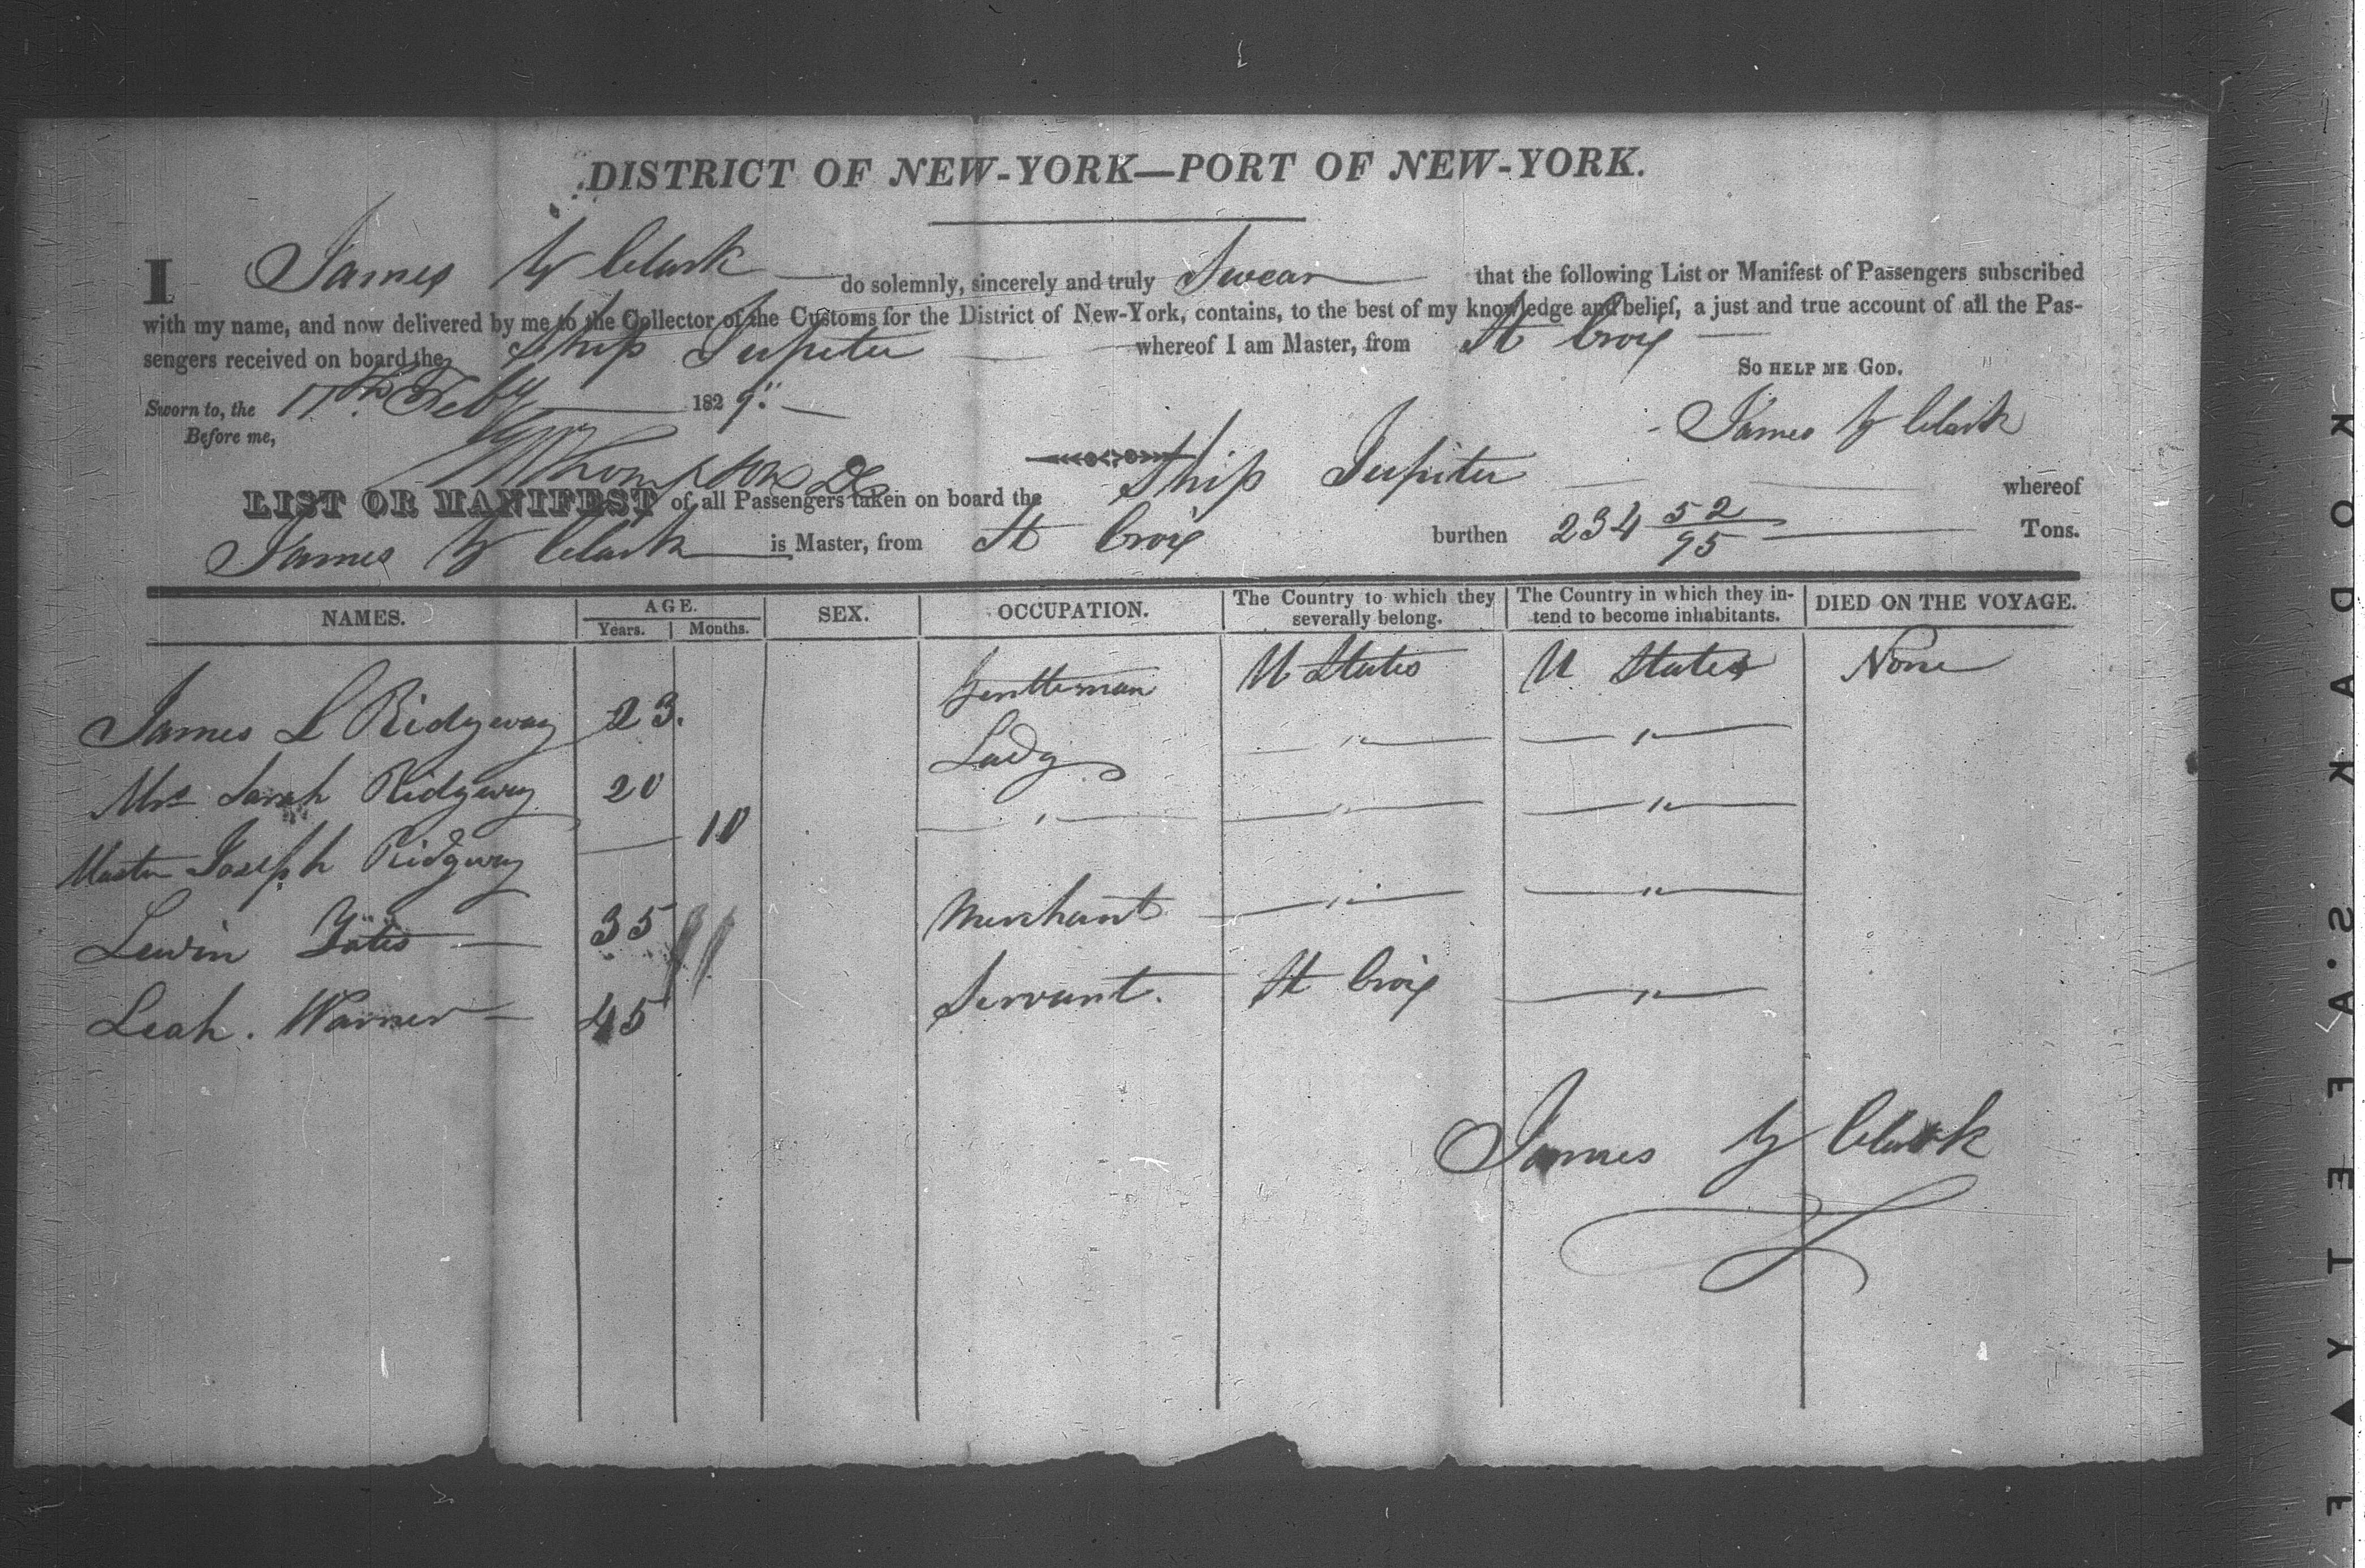 DISTRICT OF NEW-YORK—PORT OF NEW-YORK.
I James Y Clark do solemnly, sincerely and truly Swear that the following List or Manifest of Passengers subscribed
with my name, and now delivered by me to the Collector of the Customs for the District of New-York, contains, to the best of my knowledge and belief, a just and true account of all the Pas-
sengers received on board the Ship Jupiter whereof I am Master, from St Croix
So HELP ME GOD.
Sworn to, the 17th Feby 1829.
Before me, James Y Clark
Thompson
LIST OR MANIFEST of all Passengers taken on board the Ship Jupiter whereof
James Y Clark is Master, from St Croix burthen 234 52/95 Tons.
NAMES. AGE. Years. Months. SEX. OCCUPATION. The Country to which they severally belong. The Country in which they in-tend to become inhabitants. DIED ON THE VOYAGE.
James L Ridgway 23. Gentleman U States U States None
Mrs Sarah Ridgway 20 Lady " "
Master Joseph Ridgway — 10 " " "
Lewin Yates 35 Merchant " "
Leah. Warner 45 Servant. St Croix "
James Y Clark
KODAK S.A.FETY